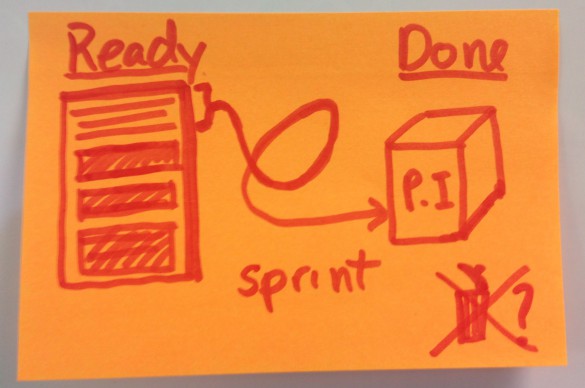 Ready Done
P.I
sprint
?